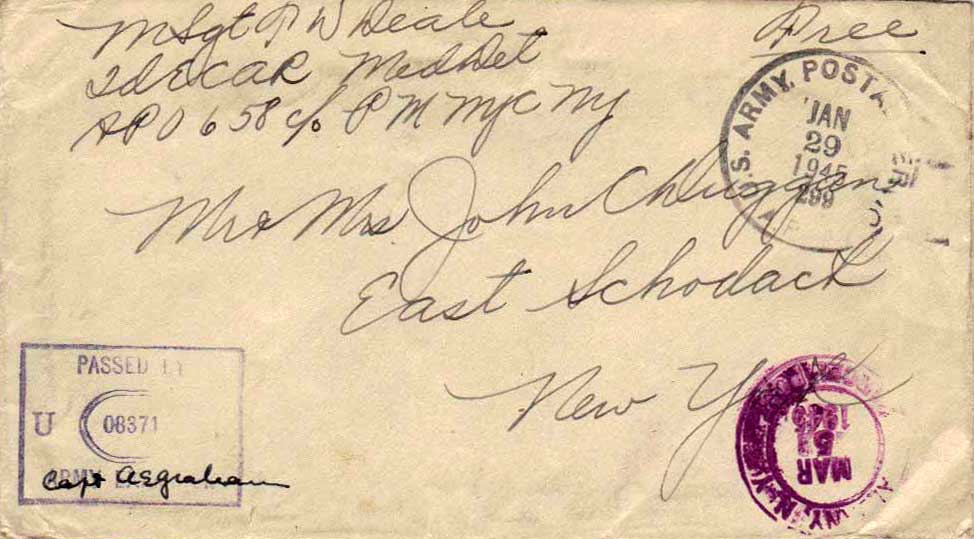 MSgt P W Deale
2d ECAR Med Det
APO 658 c/o P M NYC NY
Free
U.S. ARMY. POSTAL
JAN
29
1945
299
Mr & Mrs John C Duggan
East Schodack
New York
PASSED BY
U
08371
ARMY
Capt AEGraham
ALBANY, N.Y.
MAR
1945